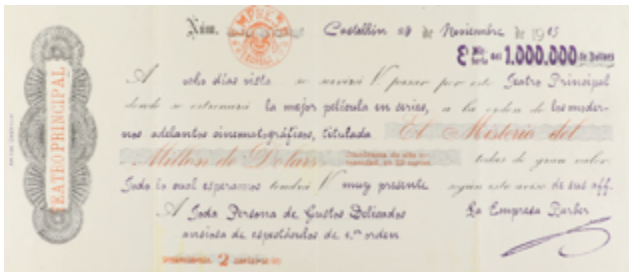 Núm.
Castellón de Noviembre de 1915
El Misterio del 1.000.000 de Dollars
A ocho días vista se servirá V. pasar por este Teatro Principal
donde se estrenará la mejor película en series, a la orden de los moder-
nos adelantos cinematográficos, titulada El Misterio del
Millón de Dollars todas de gran valor
Todo lo cual esperamos tendrá V. muy presente según este aviso de sus aff.
A Toda Persona de Gustos Delicados La Empresa Barber
ansiosa de espectáculos de 1.er orden
2
TEATRO PRINCIPAL